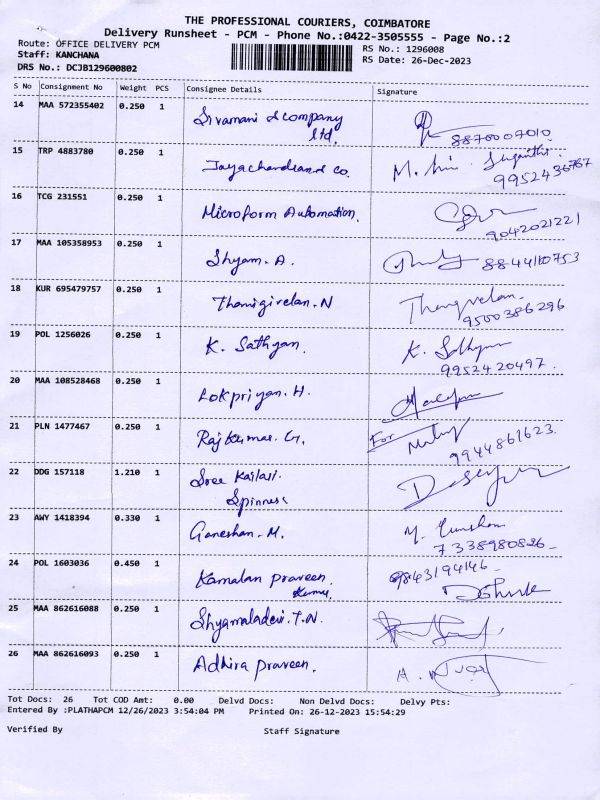 THE PROFESSIONAL COURIERS, COIMBATORE
Delivery Runsheet - PCM - Phone No.:0422-3505555 - Page No.:2
Route: OFFICE DELIVERY PCM RS No.: 1296008
Staff: KANCHANA RS Date: 26-Dec-2023
DRS No.: DCJB129600802
S No Consignment No Weight PCS Consignee Details Signature
14 MAA 572355402 0.250 1 Sivamani & company
Ltd. 8870007010
15 TRP 4883780 0.250 1 Jayachandran & co. M.
9952436767
16 TCG 231551 0.250 1 Microform Automation.
9042021221
17 MAA 105358953 0.250 1 Shyam. A. 8844110753
18 KUR 695479757 0.250 1 Thamigivelan. N Thangvelan.
9500386296
19 POL 1256026 0.250 1 K. Sathyan. K. Sathyan
9952420497.
20 MAA 108528468 0.250 1 Lokpriyan. H.
21 PLN 1477467 0.250 1 Rajkumar. G. For
9944861623.
22 DDG 157118 1.210 1 Sree Kailasi
Spinners
23 AWY 1418394 0.330 1 Ganeshan. M.
7338980826
24 POL 1603036 0.450 1 Kamalan praveen. 9843194146
Kumar
25 MAA 862616088 0.250 1 Shyamaladevi. T. N.
26 MAA 862616093 0.250 1 Adhira praveen. A.
Tot Docs: 26 Tot COD Amt: 0.00 Delvd Docs: Non Delvd Docs: Delvy Pts:
Entered By :PLATHAPCM 12/26/2023 3:54:04 PM Printed On: 26-12-2023 15:54:29
Verified By Staff Signature